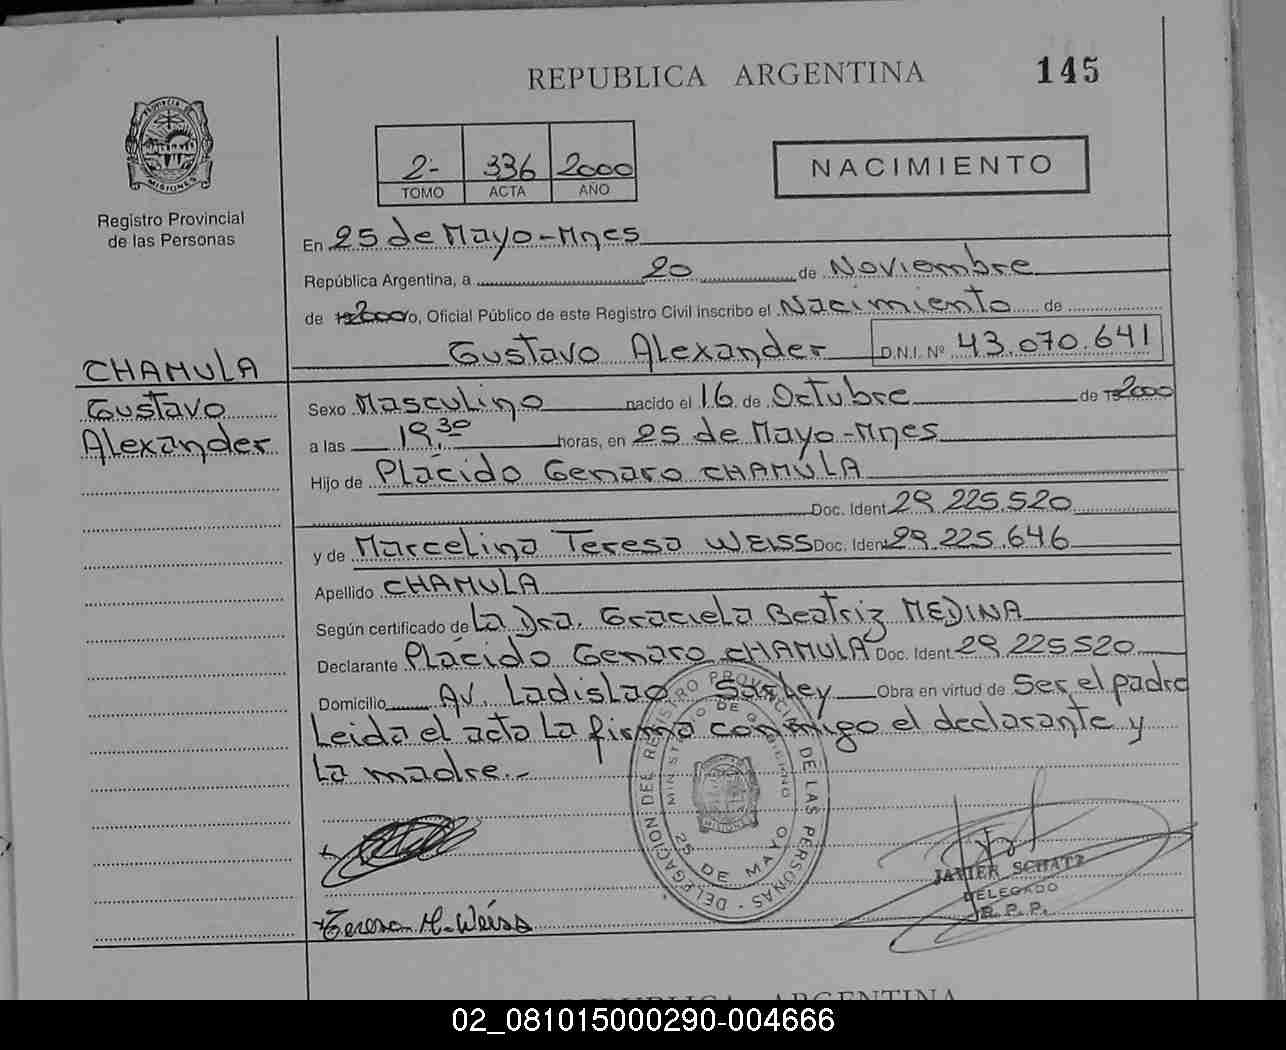 REPUBLICA ARGENTINA
145
PROVINCIA DE
MISIONES
Registro Provincial
de las Personas
2- 336 2000
TOMO ACTA AÑO
NACIMIENTO
En 25 de Mayo-Mnes
República Argentina, a 20 de Noviembre
de 2000 o, Oficial Público de este Registro Civil inscribo el Nacimiento de
Gustavo Alexander D.N.I. Nº 43.070.641
CHAMULA
Gustavo
Alexander
Sexo Masculino nacido el 16 de Octubre de 2000
a las 19,30 horas, en 25 de Mayo-Mnes
Hijo de Plácido Genaro CHAMULA
Doc. Ident 29.225.520
y de Marcelina Teresa WEISS Doc. Ident 29.225.646
Apellido CHAMULA
Según certificado de La Dra. Graciela Beatriz MEDINA
Declarante Plácido Genaro CHAMULA Doc. Ident. 29.225.520
Domicilio Av. Ladislao Obra en virtud de Ser el padre
Leida el acta La firma conmigo el declarante y
La madre.-
DELEGACION DEL REGISTRO PROVINCIAL DE LAS PERSONAS
MINISTERIO DE GOBIERNO
MISIONES
25 DE MAYO
JAVIER SCHATZ
DELEGADO
R. P. P.
Teresa M. Weiss
REPUBLICA ARGENTINA
02_081015000290-004666